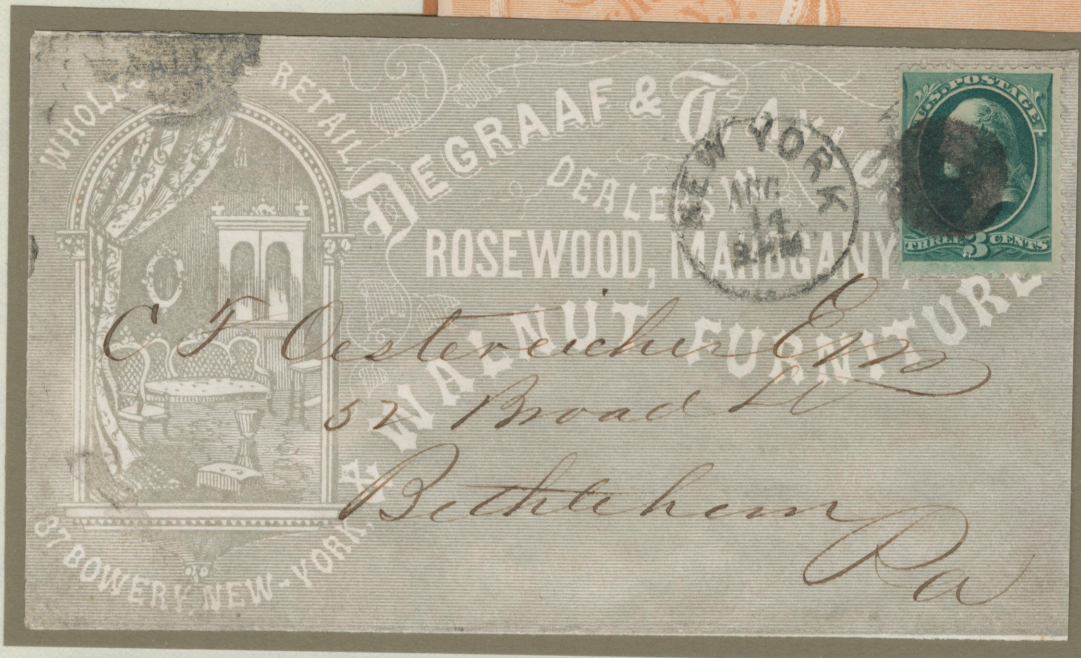 WHOLES
RETAIL
DEGRAAF & T
DEALERS
ROSEWOOD, MAHOGANY
& WALNUT FURNITURE
87 BOWERY, NEW-YORK,
NEW YORK
AUG
14
U.S. POSTAGE
THREE 3 CENTS
C F Oestereicher Esq
52 Broad St
Bethlehem
Pa